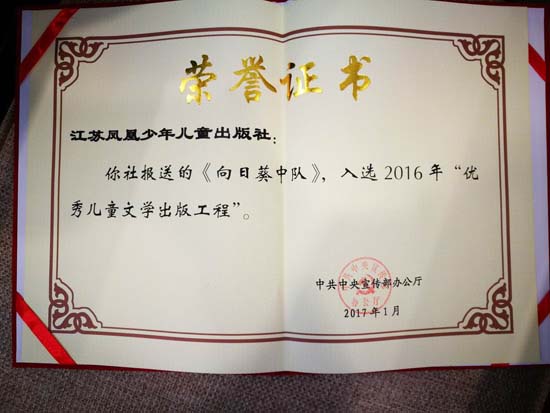 荣誉证书
江苏凤凰少年儿童出版社：
你社报送的《向日葵中队》，入选2016年“优
秀儿童文学出版工程”。
中共中央宣传部办公厅
2017年1月